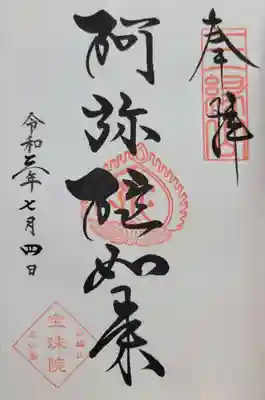 奉拝
阿弥陀如来
令和三年七月四日
宝珠院